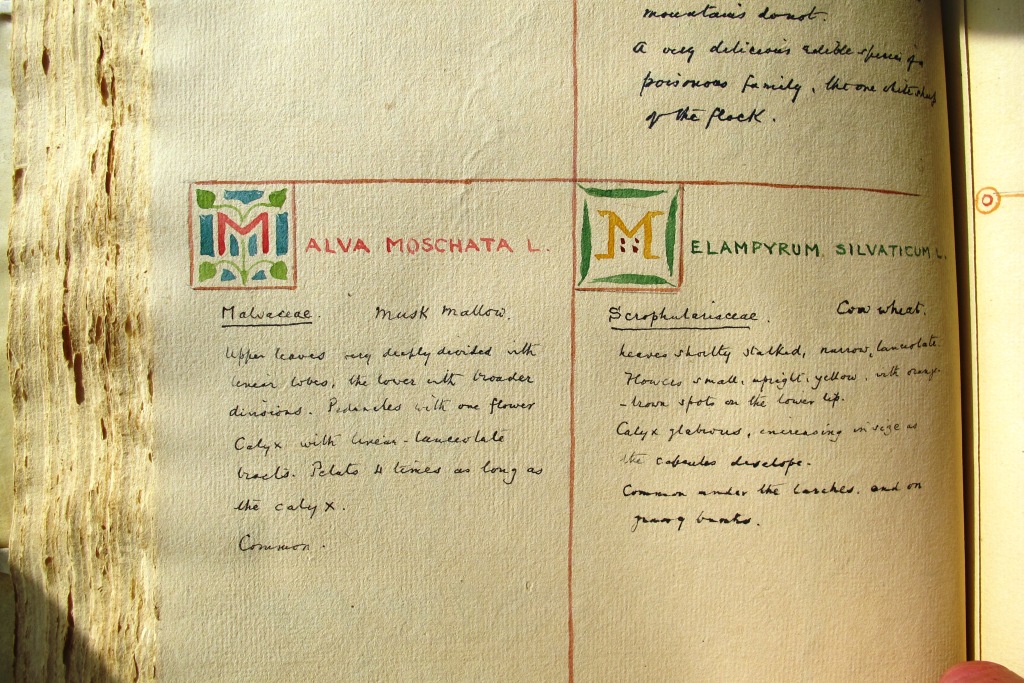 mountains do not.
A very delicious edible species of a
poisonous family, the one white sheep
of the flock.
MALVA MOSCHATA L.
Malvaceae. Musk Mallow.
Upper leaves very deeply divided with
linear lobes, the lower with broader
divisions. Peduncles with one flower
Calyx with linear-lanceolate
bracts. Petals 4 times as long as
the calyx.
Common.
MELAMPYRUM. SILVATICUM L.
Scrophulariaceae. Cow wheat.
Leaves shortly stalked, narrow, lanceolate.
Flowers small, upright, yellow, with orange-
-brown spots on the lower lip.
Calyx glabrous, increasing in size as
the capsules develope.
Common under the larches. and on
grassy banks.